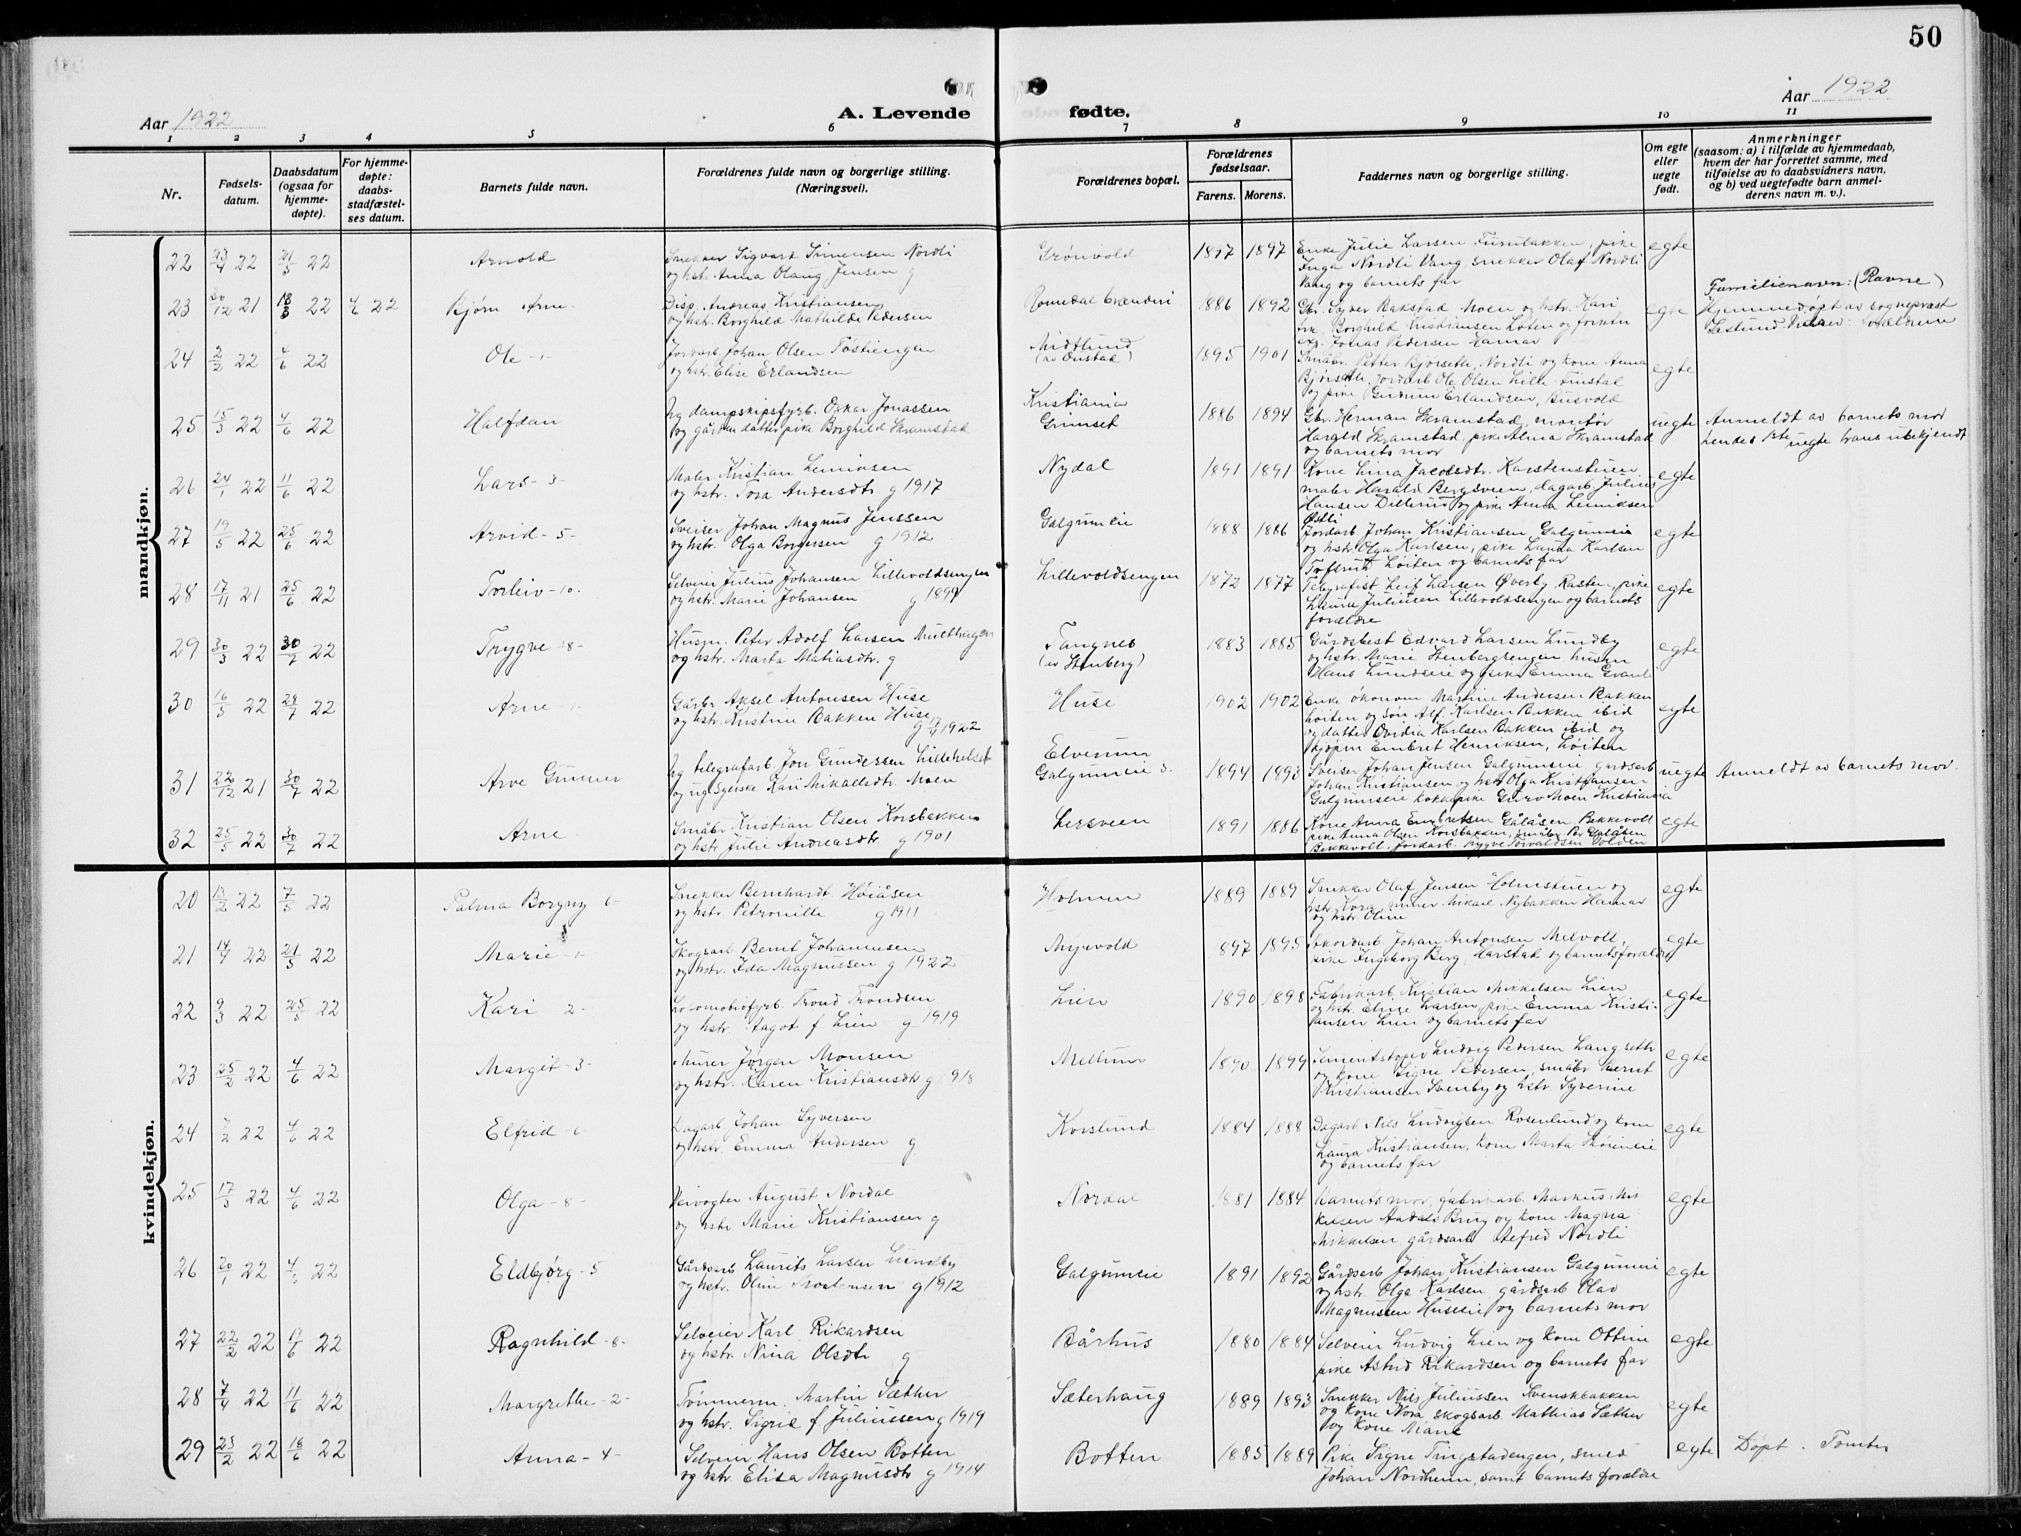 50
Aar 1922
A. Levende
fødte.
Aar 1922
1 2 3 4 5 6 7 8 9 10 11
Nr.
Fødsels-
datum.
Daabsdatum
(ogsaa for
hjemme-
døpte).
For hjemme-
døpte:
daabs-
stadfæstel-
ses datum.
Barnets fulde navn.
Forældrenes fulde navn og borgerlige stilling.
(Næringsvei).
Forældrenes bopæl.
Forældrenes
fødselsaar.
Farens. Morens.
Faddernes navn og borgerlige stilling.
Om egte
eller
uegte
født.
Anmerkninger
(saasom: a) i tilfælde av hjemmedaab,
hvem der har forrettet samme, med
tilføielse av to daabsvidners navn,
og b) ved uegtefødte barn anmel-
derens navn m. v.).
mandkjøn.
22 23/4 22 21/5 22 Arnold
Snekker Sigvart Simensen Nordli
og hstr. Anna Olaug Jensen g
Grønvold 1897 1897
Enke Julie Larsen Furubakken, pike
Inga Nordli Vang, snekker Olaf Nordli
Vang og barnets far
egte
23 30/12 21 18/3 22 22 Bjørn Arne
Disp. Andreas Kristiansen
og hstr. Borghild Mathilde Pedersen
Romedal brænderi 1886 1892
Gbr. Syver Bakstad Moen og hstr. Kari
frk. Borghild Kristiansen Løten og
Jonas Pedersen Hamar
egte
Familienavn: (Ravne)
Hjemmedøpt av sogneprest
24 2/2 22 4/6 22 Ole -1-
Jordarb. Johan Olsen Tøstiengen
og hstr. Elise Erlandsen
Midtlund
(av Onstad)
1895 1901
Småbr. Petter Bjørseth, Nordli og kone Anna
Bjørseth, jordarb Ole Olsen Lille Finstad
og pike Gudrun Erlandsen, Busvold
egte
25 15/3 22 4/6 22 Halfdan
Ug dampskipsfyrb. Oskar Jonassen
og gårdm datter pike Borghild Skramstad
Kristiania
Grimset
1886 1894
Gbr. Herman Skramstad, montør
Harald Skramstad, pike Alma Skramstad
og barnets mor
uegte
Anmeldt av barnets mor
hendes 1ste uegte hans ubekjendt
26 24/1 22 11/6 22 Lars -3-
Maler Kristian Leniksen
og hstr. Tora Andersdtr g 1917
Nydal 1891 1891
Kone Lina Jacobsdtr. Karstenstuen
maler Harald Bergsveen, dagarb. Julius
Hansen Dillerud og pike Anna Leniksen
Østli
egte
27 19/5 22 25/6 22 Arvid -5-
Sveiser Johan Magnus Jenssen
og hstr. Olga Borgersen g 1912
Galgumeie 1888 1886
Jordarb Johan Kristiansen Galgumeie
og hstr Olga Karlsen, pike Laura Karlsen
Toftrud Løiten og barnets far
egte
28 17/11 21 25/6 22 Torleiv -10.
Selveier Julius Johansen Lillevoldsengen
og hstr. Marie Johansen g 1899
Lillevoldsengen 1872 1877
Telegrafist Leif Larsen Øverby, Rasten, pike
Laura Juliusen Lillevoldsengen og barnets
forældre
egte
29 30/3 22 30/7 22 Trygve -8-
Husm. Peter Adolf Larsen
og hstr. Marta Matiasdtr. g
Tangnes
(av Stenberg)
1883 1885
Gårdsbest Edvard Larsen Lundby
og hstr. Marie Stenbergengen husm
Hans Lundseie og pike Emma
egte
30 16/5 22 29/7 22 Arne -1-
Gårbr Aksel Antonsen Huse
og hstr. Kristine Bakken Huse
g 1922
Huse 1902 1902
Enke økonom Martine Andersen Bakken
Løiten og søn Alf Karlsen Bakken ibid
og datter Ovidia Karlsen Bakken ibid og
kjøpm Embret Henriksen, Løiten
egte
31 22/12 21 30/7 22 Arve Gunner
Ug telegrafarb Jon Gundersen Lillehelset
og ug syerske Kari Mikalsdtr. Moen
Elverum
Galgumeie 3.
1894 1893
Sveiser Johan Jensen Galgumeie gårdsarb
Johan Kristiansen og hstr Olga Kristiansen
Galgumseie kokkepike Guro Moen Kristiania
uegte
Anmeldt av barnets mor.
32 25/5 22 30/7 22 Arne
Småbr. Kristian Olsen Korsbakken
og hstr Julie Andreasdtr g 1901
Lersveen 1891 1886
Kone Anna Embretsen Gålåsen, Bekkevoll
pike Anna Olsen Korsbakken, småbr Per Gålåsen
Bekkevoll, jordarb. Trygve Torvaldsen Golden
egte
kvindekjøn.
20 13/2 22 7/5 22 Palma Borgny 6-
Snekker Bernhardt Høiåsen
og hstr. Petronille g 1911
Holmen 1889 1889
Snekker Olaf Jensen Holmstuen og
hstr. Kora, murer Mikael Nybakken Hamar
og hstr. Oline
egte
21 14/4 22 21/5 22 Marie -1-
Skogsarb. Bernt Johannesen
og hstr. Ida Magnussen g 1922
Myrvold 897 1895
Johan Antonsen Melvoll,
pike Ingeborg Berg, Harstad og barnets forældre
egte
22 9/3 22 25/5 22 Kari 2-
Lokomobilfyrb. Trond Trondsen
og hstr. Aagot f Lien g 1919
Lien 1890 1898
Fabrikarb. Kristian Mikkelsen Lien
og hstr. Elise Larsen, pike Emma Kristi-
ansen Lien og barnets far
egte
23 25/2 22 4/6 22 Margit -3-
Murer Jørgen Monsen
og hstr. Karen Kristiansdtr g 1918
Mellum 1890 1899
Sementstøper Ludvig Pedersen Langseth
og kone Signe Pedersen, småbr Bernt
Kristiansen Svenby og hstr. Syverine
egte
24 22 4/6 22 Elfrid 6-
Dagarb. Johan Syversen
og hstr. Emma Andersen g
Korslund 1884 1888
Dagarb Nils Ludvigsen Rosenlund og kone
Laura Kristiansen, kone Marta
og barnets far
egte
25 17/3 22 4/6 22 Olga -8-
Veivogter August Nordal
og hstr Marie Kristiansen g
Nordal 1881 1884
Barnets mor, fabrikarb. Markus Mik
kelsen Aadals Brug og kone Magna
Mikkelsen, gårdsarb Alfred Nordli
egte
26 20/1 22 4/6 22 Eldbjørg -5
Gårdsarb Laurits Larsen Lundby
og hstr. Oline Mortensen g 1912
Galgumeie 1891 1892
Gårdsarb Johan Kristiansen Galgumeie
og hstr. Olga Karlsen gårdsarb Olav
Magnussen Huseeie og barnets mor
egte
27 22/2 22 17/6 22 Ragnhild -8-
Selveier Karl Rikardsen
og hstr. Nina Olsdtr g
Bårhus 1880 1884
Selveier Ludvig Lien og kone Ottine
pike Astrid Rikardsen og barnets far
egte
28 7/4 22 11/6 22 Margrethe -2-
Tømmerm. Martin Sæther
og hstr. Sigrid f Juliussen g 1919
Sæterhaug 1889 1893
Snekker Nils Juliussen Svenskbakken
og kone Nora, skogsarb Mathias Sæther
og kone Marie
egte
29 23/2 22 18/6 22 Anna -4-
Selveier Hans Olsen Botten
og hstr. Elisa Magnusdtr g 1914
Botten 1885 1889
Pike Signe Tingstadengen, smed
Johan Nordheim, samt barnets forældre
egte
Døpt. Tomter